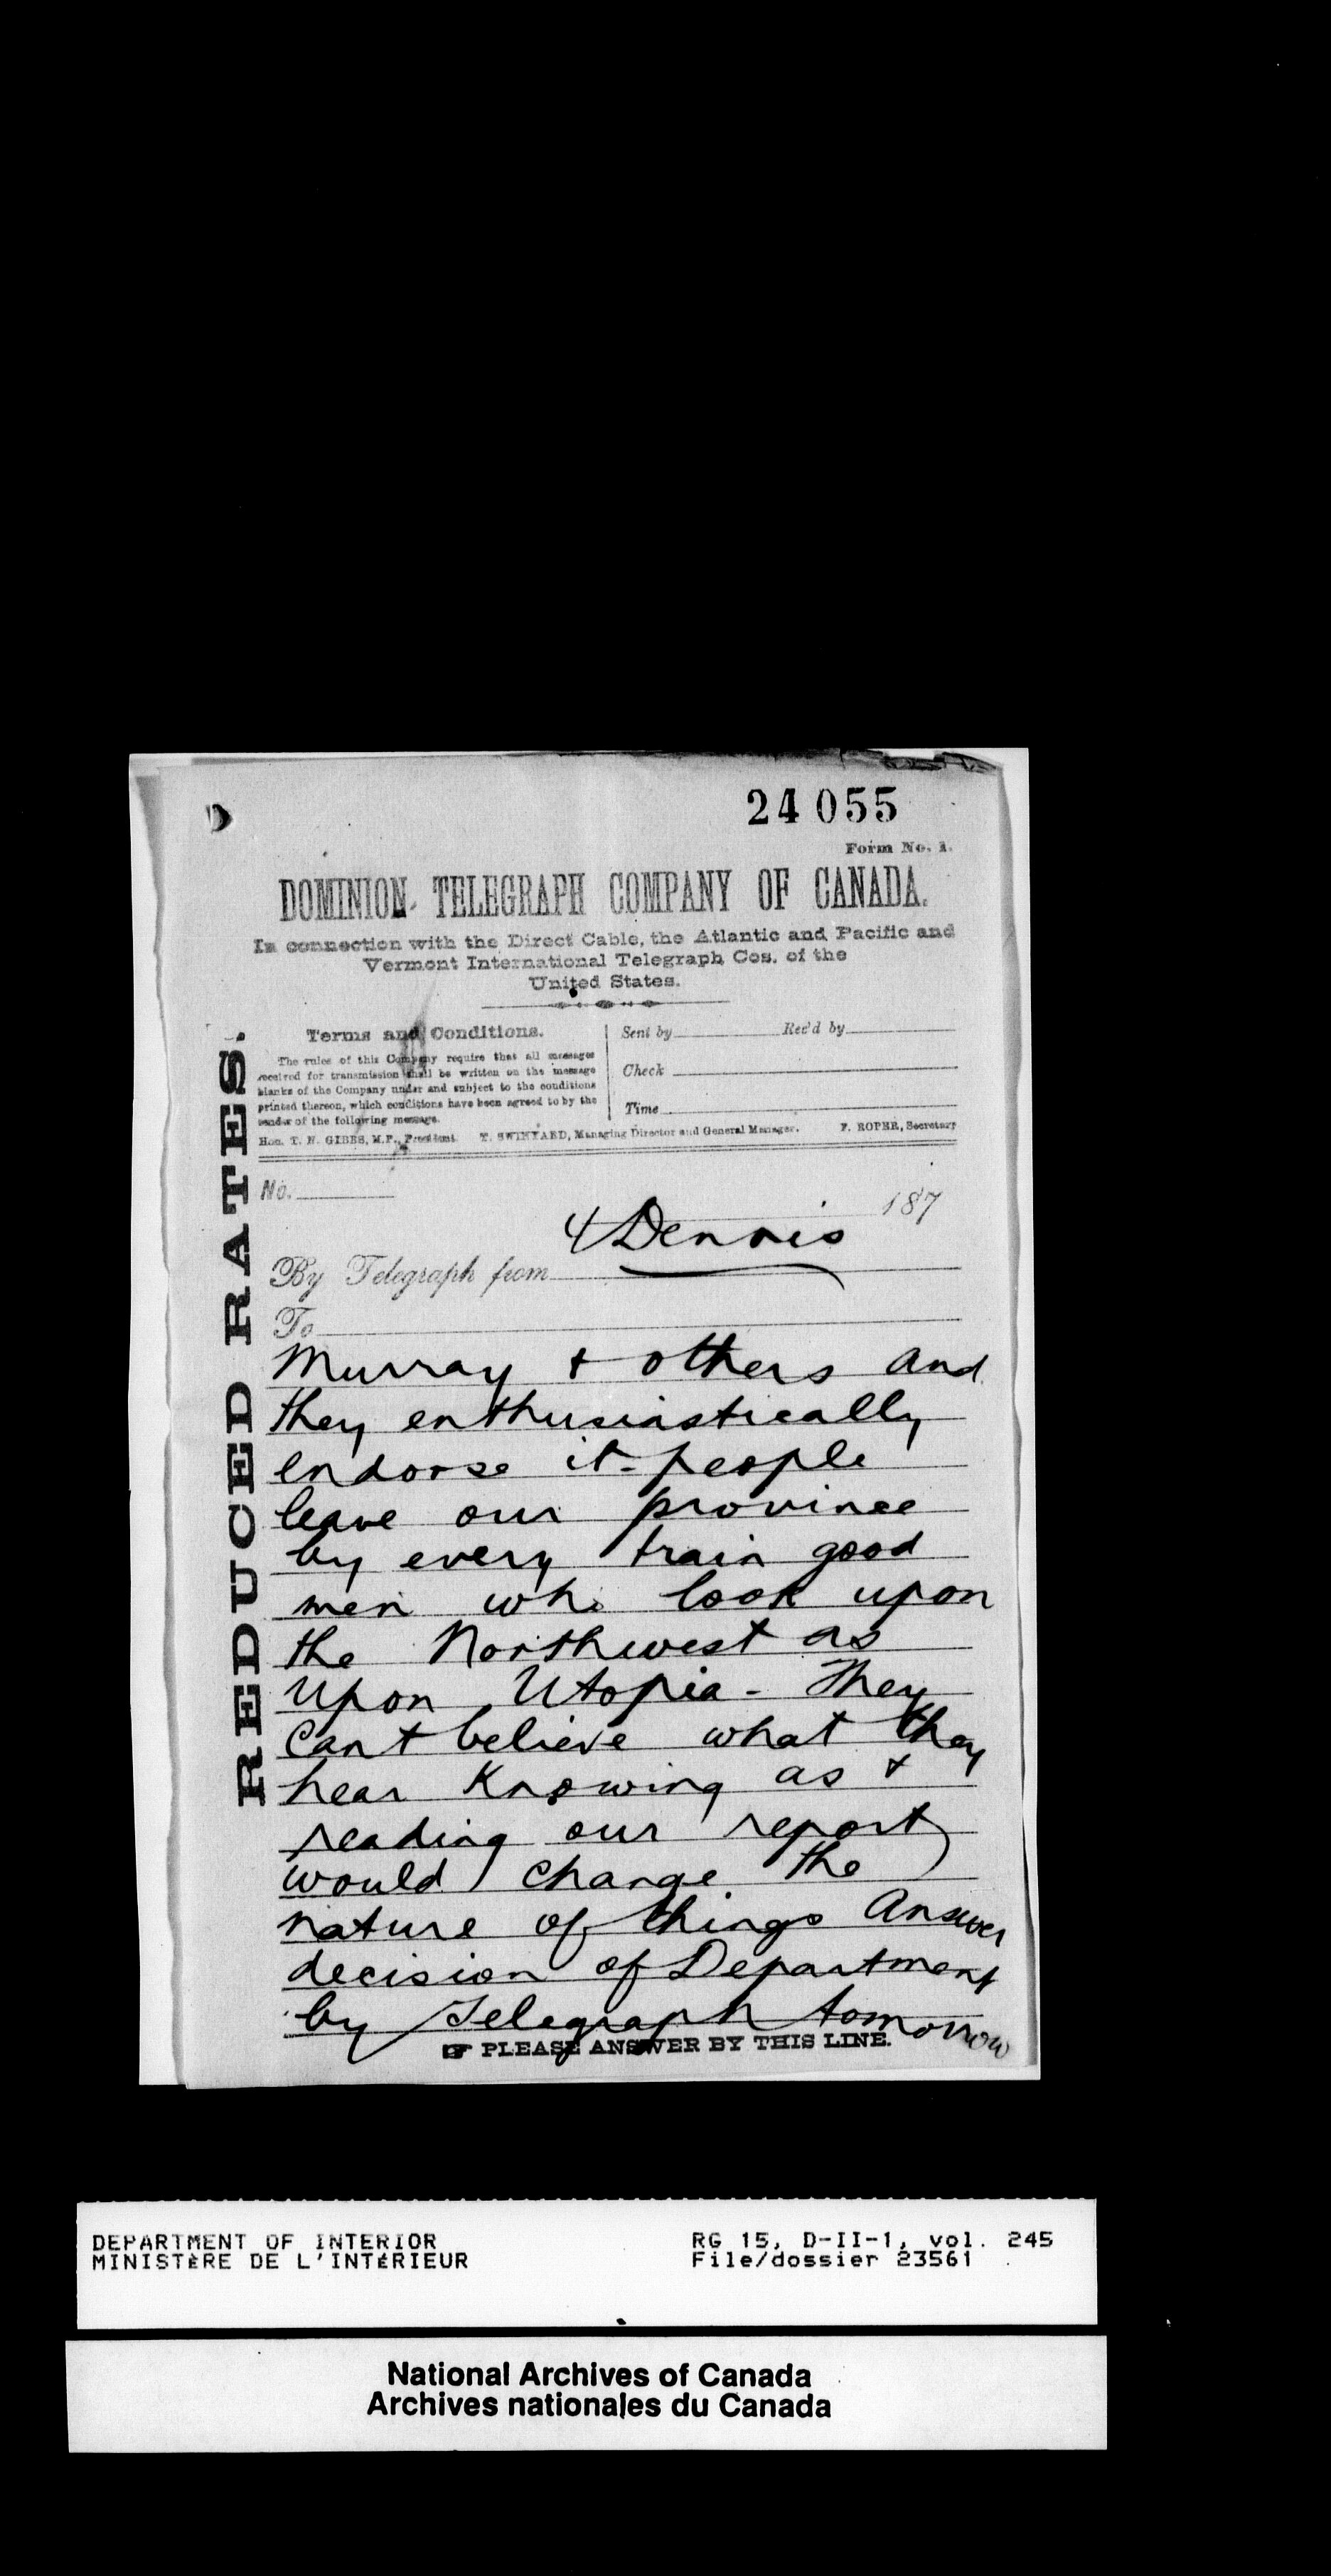 24055
Form No. 1.
DOMINION TELEGRAPH COMPANY OF CANADA.
In connection with the Direct Cable, the Atlantic and Pacific and
Vermont International Telegraph Cos. of the
United States.
REDUCED RATES.
Terms and Conditions.
The rules of this Company require that all messages
received for transmission shall be written on the message
blanks of the Company under and subject to the conditions
printed thereon, which conditions have been agreed to by the
sender of the following message.
Sent by Rec'd by
Check
Time
Hon. T. N. GIBBS, M.P., President. T. SWINYARD, Managing Director and General Manager. F. ROPER, Secretary
No.
187
4 Dennis
By Telegraph from
To
Murray + others and
they enthusiastically
endorse it - people
leave our province
by every train good
men who look upon
the Northwest as
Upon Utopia - They
cant believe what they
hear Knowing as +
reading our report
would change the
nature of things Answer
decision of Department
by Telegraph tomorrow
☞ PLEASE ANSWER BY THIS LINE.
DEPARTMENT OF INTERIOR
MINISTÈRE DE L'INTÉRIEUR
RG 15, D-II-1, vol. 245
File/dossier 23561
National Archives of Canada
Archives nationales du Canada